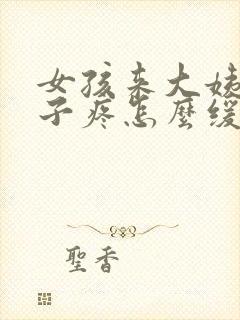 女孩来大姨
子疼怎麼缓
聖香